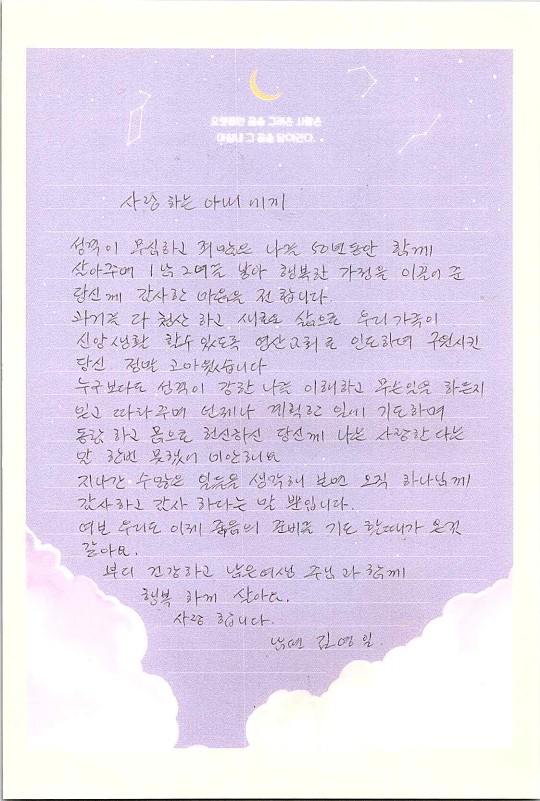 오랫동안 꿈을 그리는 사람은
마침내 그 꿈을 닮아간다.
사랑 하는 아내 에게
성격이 무심하고 죄많은 나를 50년동안 함께
살아주며 1남 2녀를 낳아 행복한 가정을 이끌어 준
당신께 감사한 마음을 전 합니다.
과거를 다 청산 하고 새로운 삶으로 우리가족이
신앙생활 할수 있도록 연산교회로 인도하며 구원시킨
당신 정말 고마웠습니다
누구보다도 성격이 강한 나를 이해하고 무슨일을 하든지
믿고 따라주며 언제나 계획한 일에 기도하며
동참 하고 몸으로 헌신하신 당신께 나는 사랑한다는
말 한번 못했어 미안해요
지나간 수많은 일들을 생각해 보면 오직 하나님께
감사하고 감사 하다는 말 뿐입니다.
여보 우리도 이제 죽음의 준비를 기도 할때가 온것
같아요.
부디 건강하고 남은여생 주님과 함께
행복 하게 살아요.
사랑 합니다.
남편 김영일.